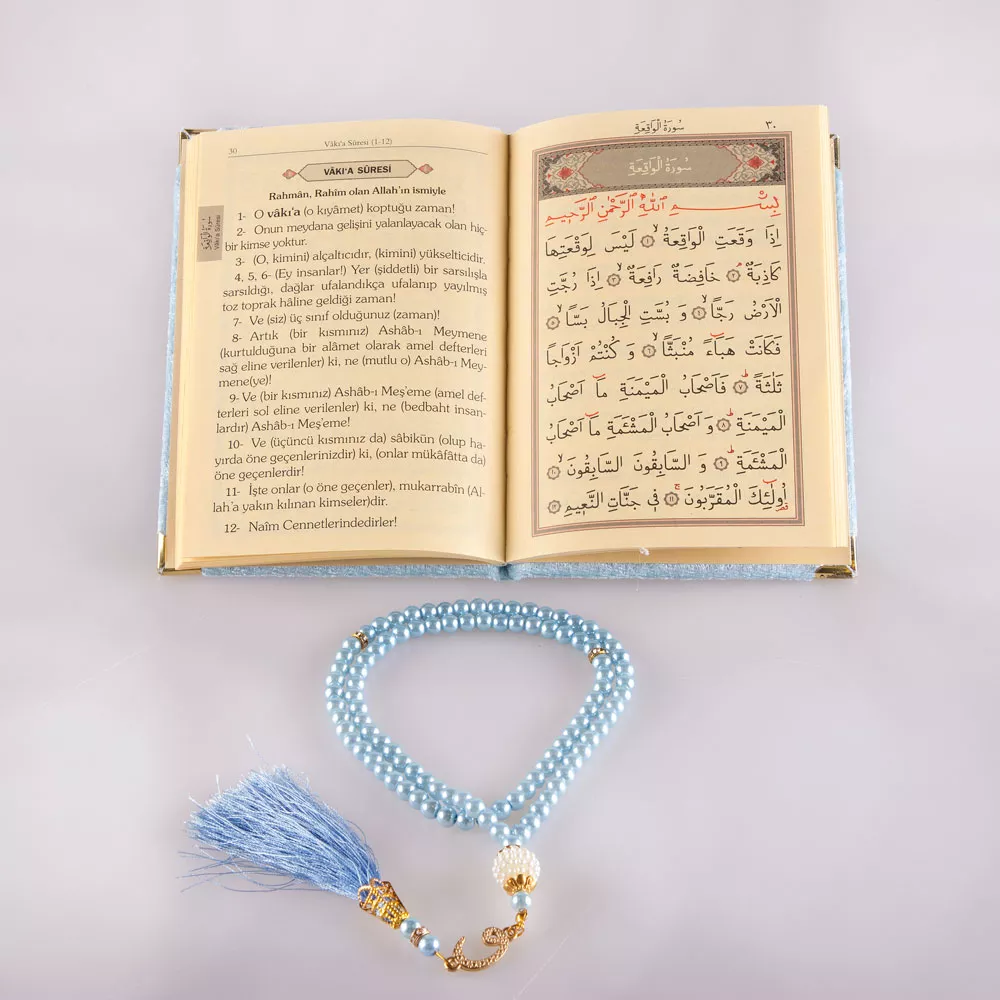 30
Vâkı'a Sûresi (1-12)
VÂKI'A SÛRESİ
Rahmân, Rahîm olan Allah'ın ismiyle
1- O vâkı'a (o kıyâmet) koptuğu zaman!
2- Onun meydana gelişini yalanlayacak olan hiç-
bir kimse yoktur.
3- (O, kimini) alçaltıcıdır, (kimini) yükselticidir.
4, 5, 6- (Ey insanlar!) Yer (şiddetli) bir sarsılışla
sarsıldığı, dağlar ufalandıkça ufalanıp yayılmış
toz toprak hâline geldiği zaman!
7- Ve (siz) üç sınıf olduğunuz (zaman)!
8- Artık (bir kısmınız) Ashâb-ı Meymene
(kurtulduğuna bir alâmet olarak amel defterleri
sağ eline verilenler) ki, ne (mutlu o) Ashâb-ı Mey-
mene(ye)!
9- Ve (bir kısmınız) Ashâb-ı Meş'eme (amel def-
terleri sol eline verilenler) ki, ne (bedbaht insan-
lardır) Ashâb-ı Meş'eme!
10- Ve (üçüncü kısmınız da) sâbikûn (olup ha-
yırda öne geçenlerinizdir) ki, (onlar mükâfâtta da)
öne geçenlerdir!
11- İşte onlar (o öne geçenler), mukarrabîn (Al-
lah'a yakın kılınan kimseler)dir.
12- Naîm Cennetlerindedirler!
سورة الواقعة
Vâkı'a Sûresi
سُورَةُ الْوَاقِعَةِ
٣٠
سُورَةُ الْوَاقِعَةِ
بِسْمِ اللّٰهِ الرَّحْمٰنِ الرَّحِيمِ
اِذَا وَقَعَتِ الْوَاقِعَةُ ۙ ﴿١﴾ لَيْسَ لِوَقْعَتِهَا
كَاذِبَةٌ ۢ ﴿٢﴾ خَافِضَةٌ رَافِعَةٌ ۙ ﴿٣﴾ اِذَا رُجَّتِ
الْاَرْضُ رَجًّا ۙ ﴿٤﴾ وَ بُسَّتِ الْجِبَالُ بَسًّا ۙ ﴿٥﴾
فَكَانَتْ هَبَٓاءً مُنْبَثًّا ۙ ﴿٦﴾ وَ كُنْتُمْ اَزْوَاجًا
ثَلٰثَةً ۜ ﴿٧﴾ فَاَصْحَابُ الْمَيْمَنَةِ مَٓا اَصْحَابُ
الْمَيْمَنَةِ ۜ ﴿٨﴾ وَ اَصْحَابُ الْمَشْـَٔمَةِ مَٓا اَصْحَابُ
الْمَشْـَٔمَةِ ۜ ﴿٩﴾ وَ السَّابِقُونَ السَّابِقُونَ ۙ ﴿١٠﴾
اُو۬لٰٓئِكَ الْمُقَرَّبُونَ ۚ ﴿١١﴾ فِي جَنَّاتِ النَّعِيمِ ﴿١٢﴾